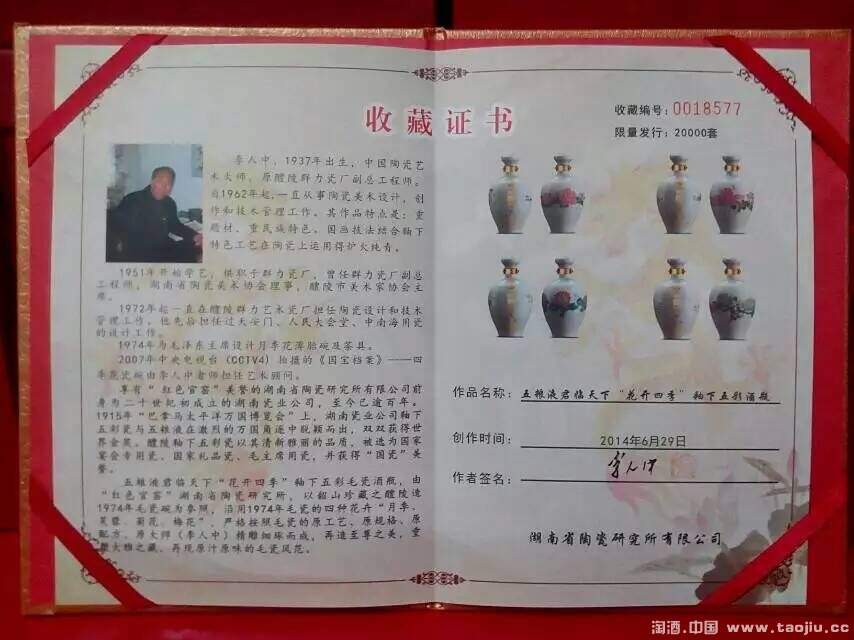 收藏证书
李人中，1937年出生，中国陶瓷艺
术大师，原醴陵群力瓷厂副总工程师。
自1962年起，一直从事陶瓷美术设计，创
作和技术管理工作。其作品特点是：重
题材、重民族特色、国画技法结合釉下
特色工艺在陶瓷上运用得炉火纯青。
1951年开始学艺，供职于群力瓷厂，曾任群力瓷厂副总
工程师，湖南省陶瓷美术协会理事，醴陵市美术家协会主
席。
1972年起一直在醴陵群力艺术瓷厂担任陶瓷设计和技术
管理工作，他先后担任过天安门、人民大会堂、中南海用瓷
的设计工作。
1974年为毛泽东主席设计月季花薄胎碗及茶具。
2007年中央电视台（CCTV4）拍摄的《国宝档案》——四
季花瓷碗由李人中老师担任艺术顾问。
享有“红色官窑”美誉的湖南省陶瓷研究所有限公司前
身为二十世纪初成立的湖南瓷业公司，至今已逾百年。
1915年“巴拿马太平洋万国博览会”上，湖南瓷业公司釉下
五彩瓷与五粮液在激烈的万国角逐中脱颖而出，双双获得世
界金奖。醴陵釉下五彩瓷以其清新雅丽的品质，被选为国家
宴会专用瓷、国家礼品瓷、毛主席用瓷，并获得“国瓷”美
誉。
五粮液君临天下“花开四季”釉下五彩毛瓷酒瓶，由
“红色官窑”湖南省陶瓷研究所，以韶山珍藏之醴陵造
1974年毛瓷碗为参照，沿用1974年毛瓷的四种花卉“月季、
芙蓉、菊花、梅花”，严格按照毛瓷的原工艺、原规格、原
配方、原大师（李人中）精雕细琢而成，再造至尊之美，重
大雅之藏、再现原汁原味的毛瓷风范。
收藏编号：0018577
限量发行：20000套
作品名称：五粮液君临天下“花开四季”釉下五彩酒瓶
创作时间：2014年6月29日
作者签名：李人中
湖南省陶瓷研究所有限公司
淘酒.中国 www.taojiu.cc